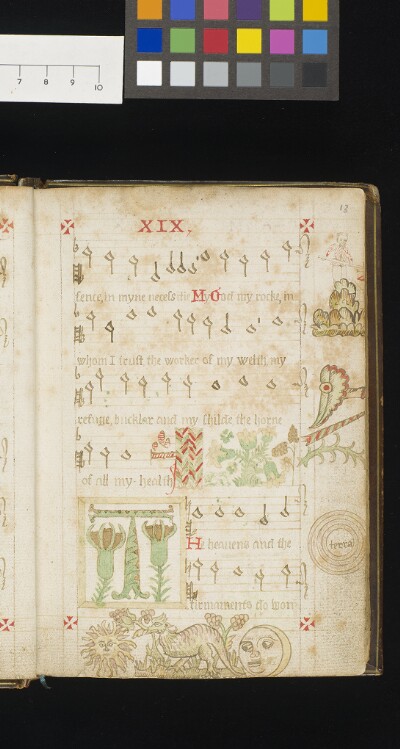 7 8 9 10
XIX.
fence, in myne necessitie My rocke, in
Mo
whom I trust the worker of my welth, my
refuge, buckler and my shilde the horne
of all my health
T
He heavens and the
firmaments do won
terra